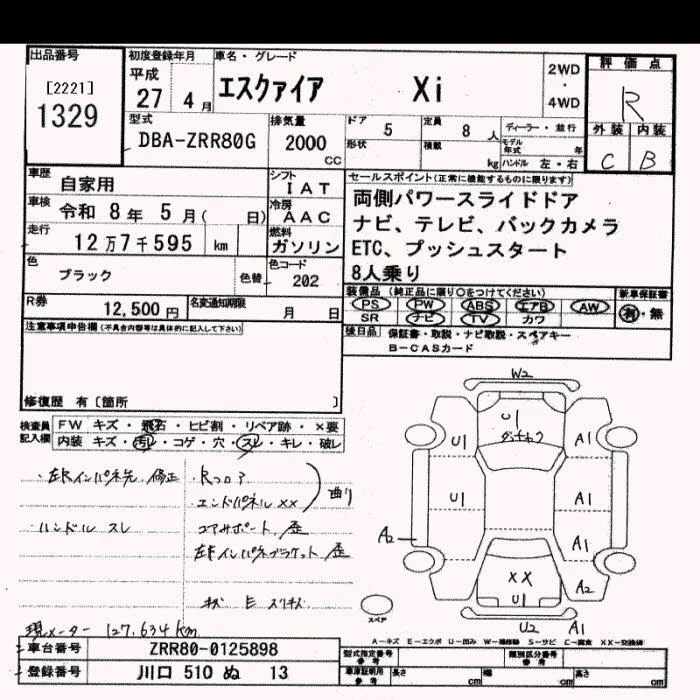 出品番号
[2221]
1329
初度登録年月
平成
27 4月
車名・グレード
エスクァイア Xi
2WD
・
4WD
評価点
R
外装 内装
C B
型式
DBA-ZRR80G
排気量
2000
cc
ドア 5
定員 8 人
形状
積載 kg
ディーラー・並行
モデル年式 年
ハンドル 左・右
車歴 自家用
シフト IAT
車検 令和 8年 5月( 日)
冷房 AAC
走行 12万7千595 km
燃料 ガソリン
色 ブラック
色替
色コード 202
R券 12,500円
名変通知期限 月 日
セールスポイント(正常に機能するものに限ります)
両側パワースライドドア
ナビ、テレビ、バックカメラ
ETC、プッシュスタート
8人乗り
装備品(純正品に限り○をつけてください)
PS PW ABS エアB AW
SR ナビ TV カワ
新車保証書
有・無
後日品 保証書・取説・ナビ取説・スペアキー
B-CASカード
注意事項申告欄(不具合内容等は具体的に記入して下さい)
修復歴 有〔箇所 〕
検査員記入欄
FW キズ・飛石・ヒビ割・リペア跡・×要
内装 キズ・汚レ・コゲ・穴・スレ・キレ・破レ
・左右インパネ先 修正
ハンドル スレ
・Rフロア
・エンドパネル ××
曲り
コアサポート 歪
左右インパネブラケット 歪
現メーター 127,634km
W2
U1
U1
A1
U1
A1
A2
A1
××
U1
A2
U2 A1
スペア
A-キズ E-エクボ U-凹み W-補修跡 S-サビ C-腐食 XX-交換済
車台番号 ZRR80-0125898
登録番号 川口 510 ぬ 13
型式指定番号
参考
類別区分番号
参考
車庫証明用
参考
長さ cm
幅 cm
高さ cm